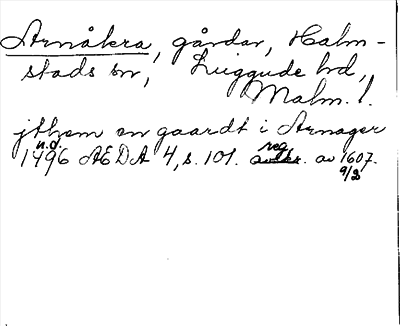 Arnåkra, gårdar, Halm-
stads sn, Luggude hd,
Malm. l.
jthem en gaardt i Arnager
n.d.
1496 AEDA 4, s. 101. reg. av 1607.
9/2